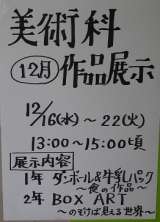 美術科
12月 作品展示
12/16(水)～22(火)
13:00～15:00頃
展示内容
1年 ダンボール&牛乳パック
～夜の作品～
2年 BOX ART
～のぞけば見える世界～